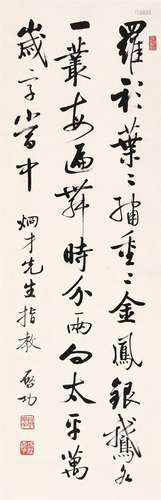 羅衫葉〻繡重〻金鳳銀鵝各
一叢每遍舞時分兩向太平萬
歲字當中 炯才先生指教 啓功